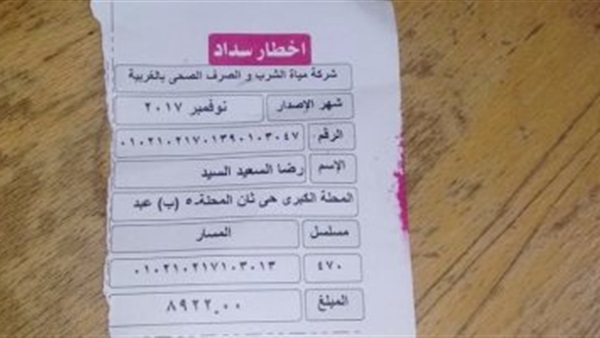 اخطار سداد
شركة مياة الشرب و الصرف الصحى بالغربية
شهر الإصدار نوفمبر ٢٠١٧
الرقم ٠١٠٢١٠٢١٧٠١٣٩٠١٠٣٠٤٧
الإسم رضا السعيد السيد
المحلة الكبرى هى ثان المحلة-٥ (ب) عبد
مسلسل المسار
٤٧٠ ٠١٠٢١٠٢١٧١٠٣٠١٣
المبلغ ٨٩٢٢,٠٠